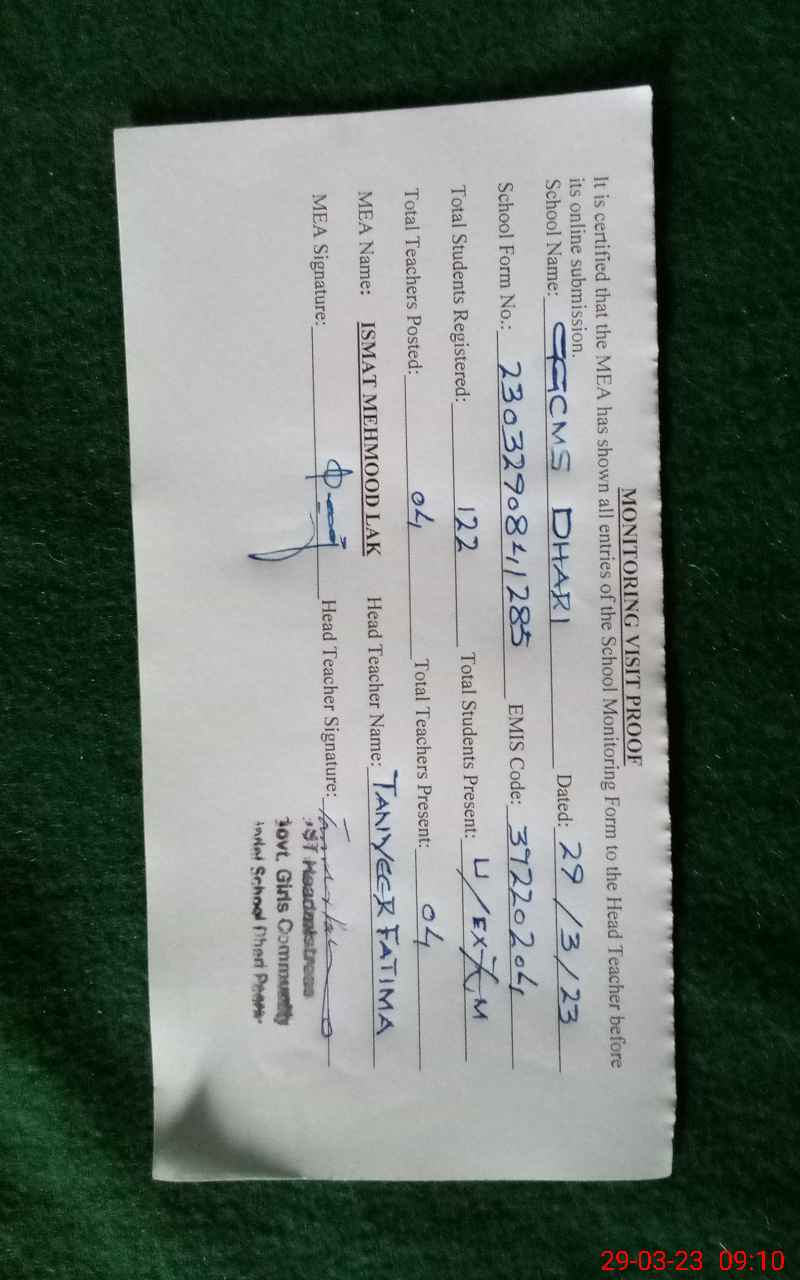 MONITORING VISIT PROOF
It is certified that the MEA has shown all entries of the School Monitoring Form to the Head Teacher before
its online submission.
School Name: GGCMS DHARI Dated: 29/3/23
School Form No.: 2303290841285 EMIS Code: 39220204
Total Students Registered: 122 Total Students Present: U/EXAM
Total Teachers Posted: 04 Total Teachers Present: 04
MEA Name: ISMAT MEHMOOD LAK Head Teacher Name: TANVEER FATIMA
MEA Signature: Head Teacher Signature:
Headmistress
Govt. Girls Community
School Dhari
29-03-23 09:10